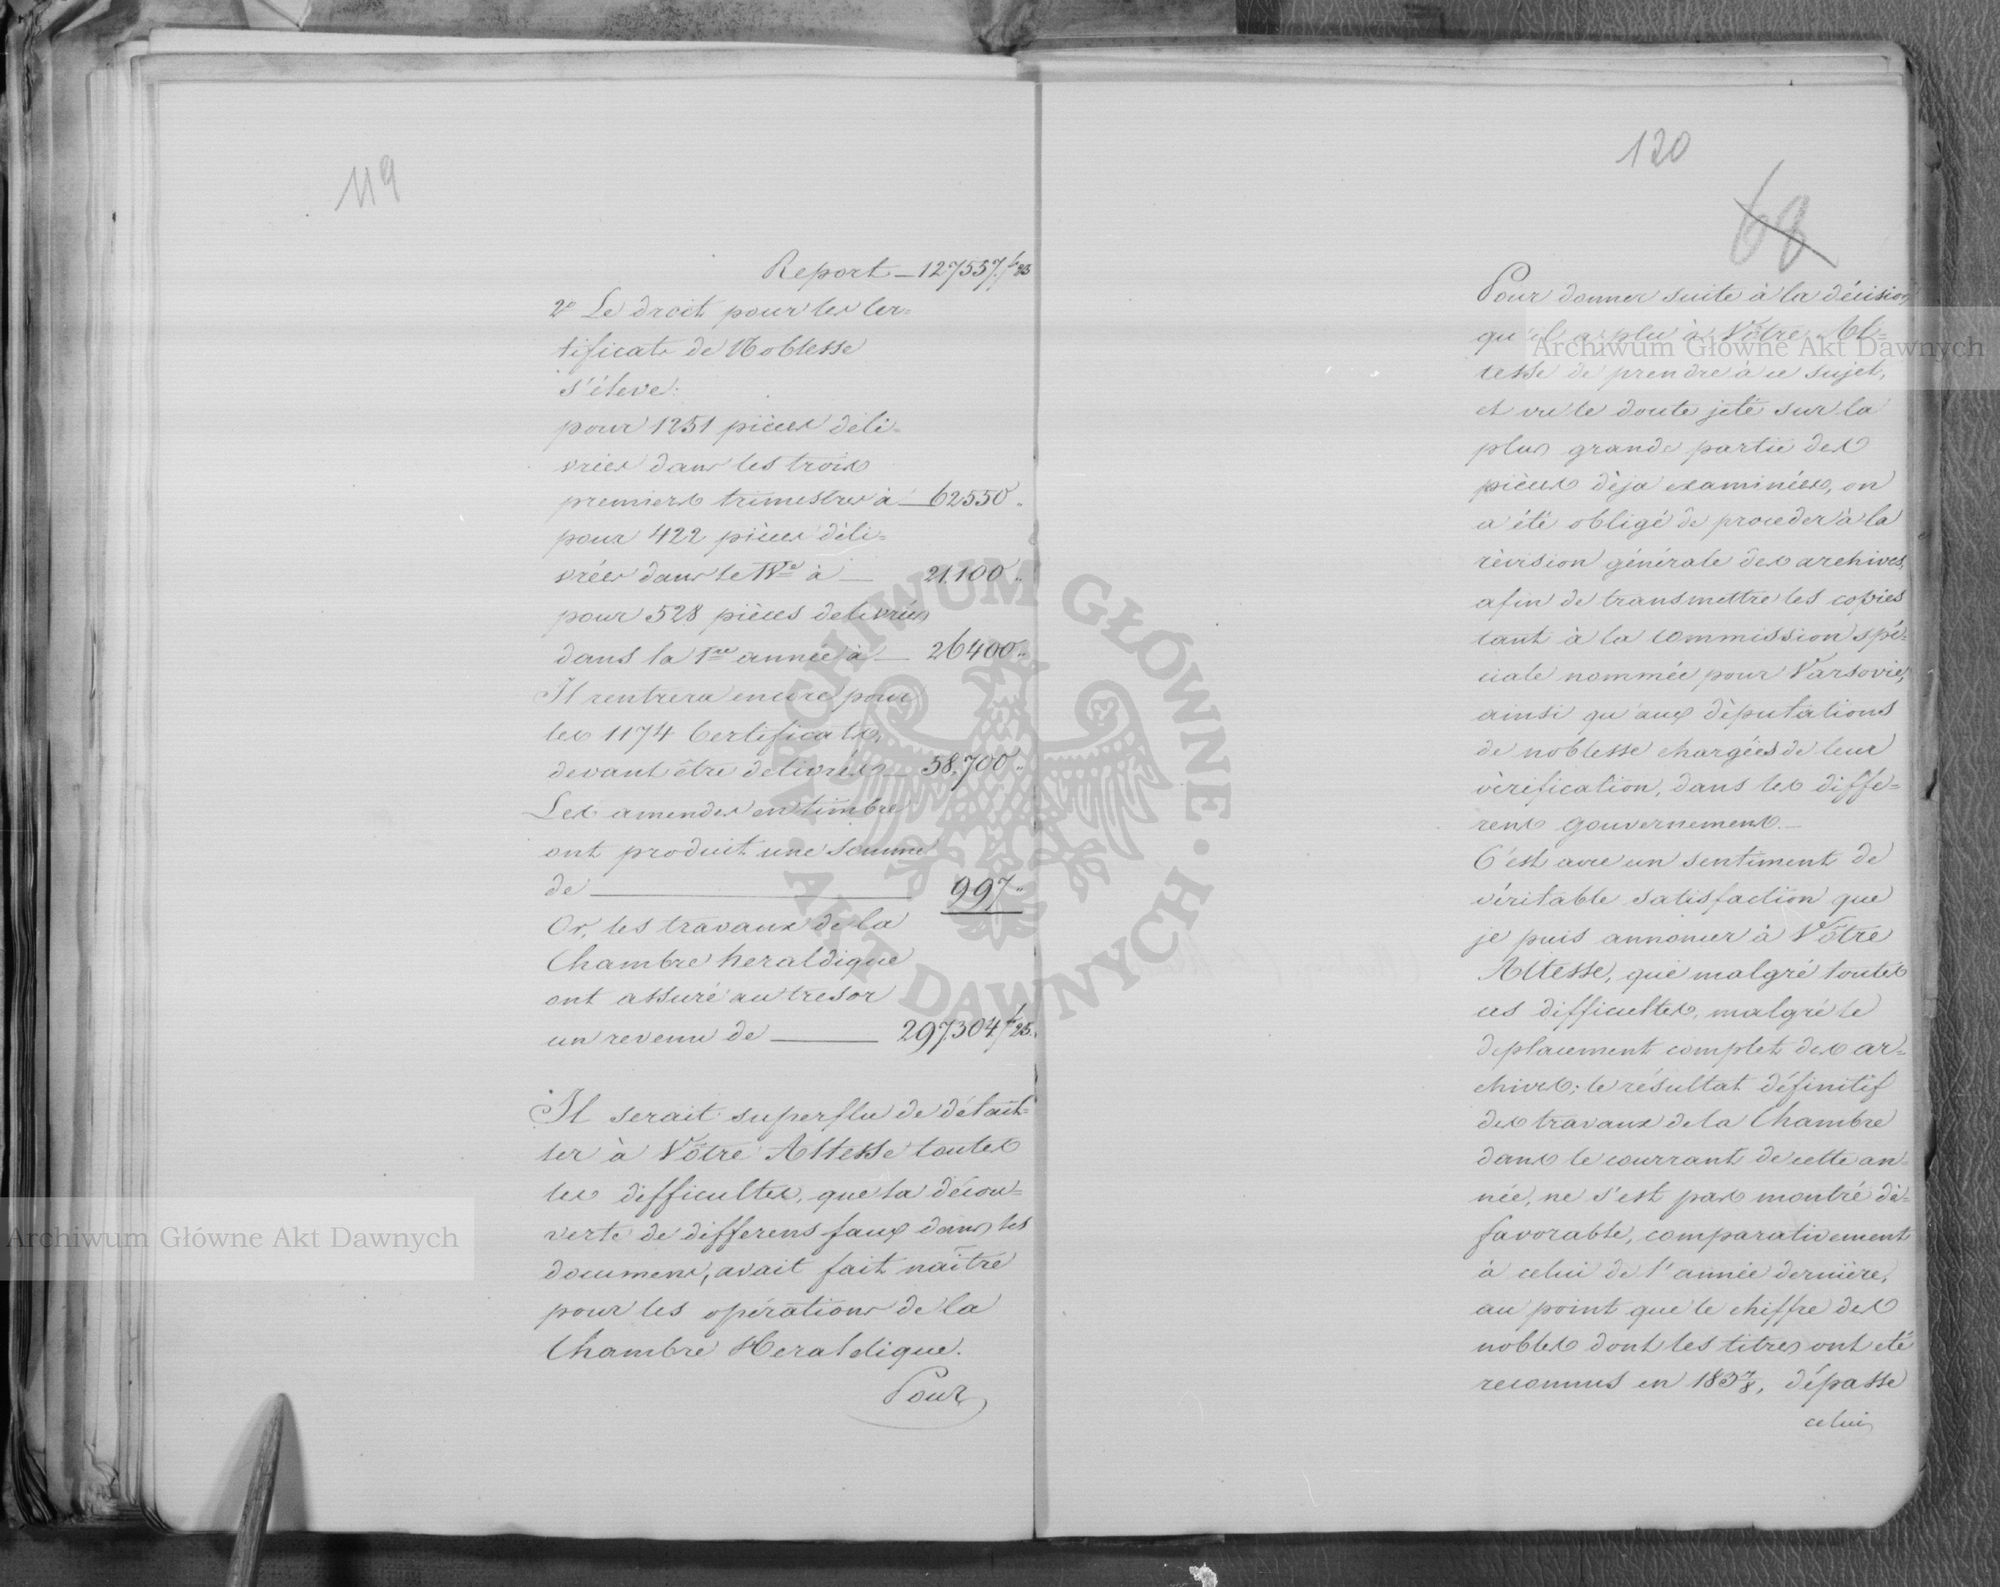 119
Report — 127557.f 25
2º Le droit pour les Cer=
tificats de Noblesse
s'éleve:
pour 1251 pièces déli=
vrées dans les trois
premiers trimestres à — 62550 "
pour 422 pièces déli=
vrées dans le IVe à — 21,100 "
pour 528 pièces delivrées
dans la 1re année à — 26400 "
Il rentrera encore pour
les 1174 Certificats,
devant être delivrés — 58,700 "
Les amendes en timbre
ont produit une somme
de — 997 "
Or, les travaux de la
Chambre heraldique
ont assuré au tresor
un revenu de — 297,304 f 25.
Il serait superflu de détail=
ler à Vôtre Altesse toutes
les difficultes, que la décou=
verte de differens faux dans les
documens, avait fait naître
pour les opérations de la
Chambre Heraldique.
Pour
120
68
Pour donner suite à la décision
qu'il a plu à Vôtre Al=
tesse de prendre à ce sujet,
et vu le doute jeté sur la
plus grande partie des
pièces dèja examinées, on
a été obligé de proceder à la
rèvision générale des archives,
afin de transmettre les copies
tant à la commission spé=
ciale nommée pour Varsovie,
ainsi qu'aux dèputations
de noblesse chargées de leur
vèrification, dans les diffe=
rens gouvernemens.—
C'est avec un sentiment de
véritable satisfaction que
je puis annoncer à Vôtre
Altesse, que malgré toutes
ces difficultes, malgré le
deplacement complet des ar=
chives; le résultat définitif
des travaux de la Chambre
dans le courrant de cette an=
née, ne s'est pas montré dè=
favorable, comparativement
à celui de l'année dernière,
au point que le chiffre des
nobles dont les titres ont été
reconnus en 1837/8, dépasse
celui
Archiwum Główne Akt Dawnych
Archiwum Główne Akt Dawnych
ARCHIWUM GŁÓWNE · AKT DAWNYCH ·